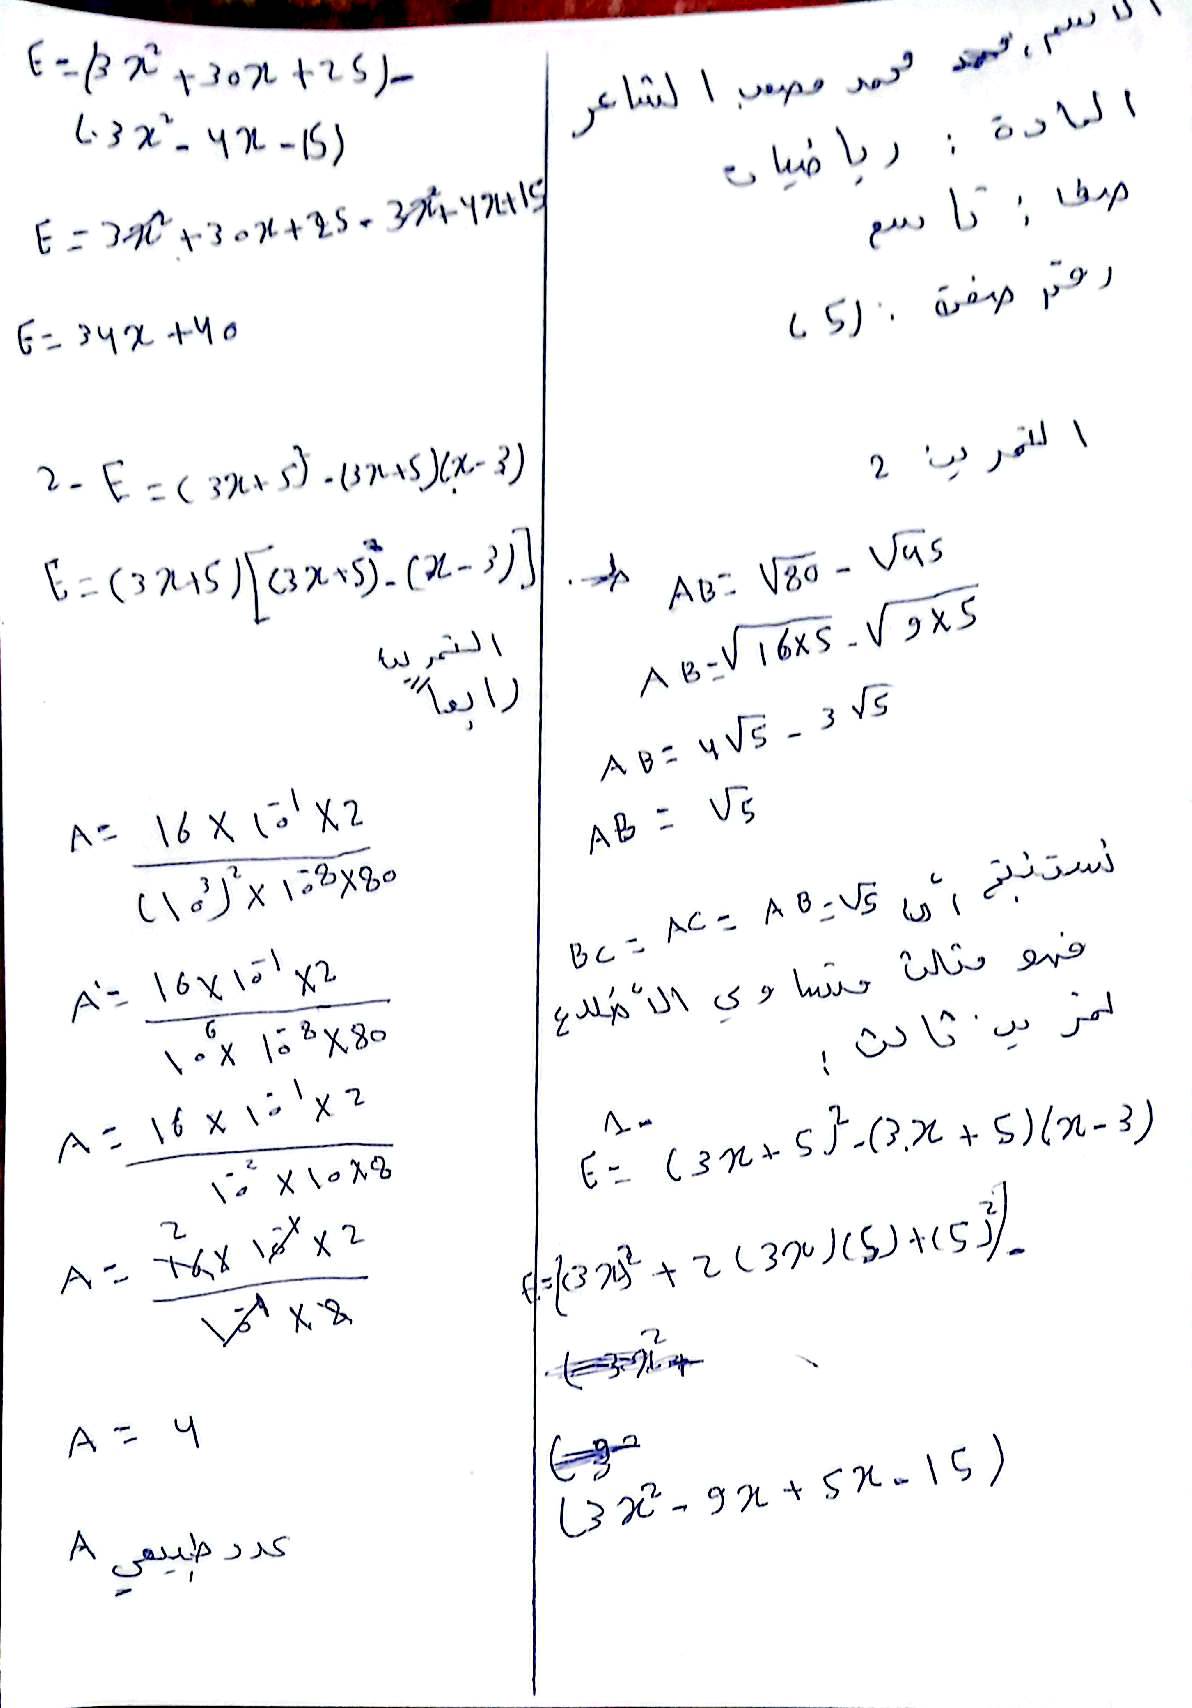 الاسم: محمد مصعب الشاعر
المادة: رياضيات
صف: تاسع
رقم صفحة: (5)
التمرين 2
AB = √80 - √45
AB = √16×5 - √9×5
AB = 4√5 - 3√5
AB = √5
نستنتج أن BC = AC = AB = √5
فهو مثلث متساوي الأضلاع
تمرين ثالث:
1-
E = (3x+5)² - (3x+5)(x-3)
E = [(3x)² + 2(3x)(5) + (5)²] -
(3x² - 9x + 5x - 15)
E = (3x² + 30x + 25) -
(3x² - 4x - 15)
E = 3x² + 30x + 25 - 3x² + 4x + 15
E = 34x + 40
2- E = (3x+5)² - (3x+5)(x-3)
E = (3x+5)[(3x+5)² - (x-3)]
التمرين
رابعاً
A = 16 × 10⁻¹ × 2
(10³)² × 10⁻⁸ × 80
A = 16 × 10⁻¹ × 2
10⁶ × 10⁻⁸ × 80
A = 16 × 10⁻¹ × 2
10⁻² × 10 × 8
2
A = 16 × 10⁻¹ × 2
10⁻¹ × 8
A = 4
A عدد طبيعي